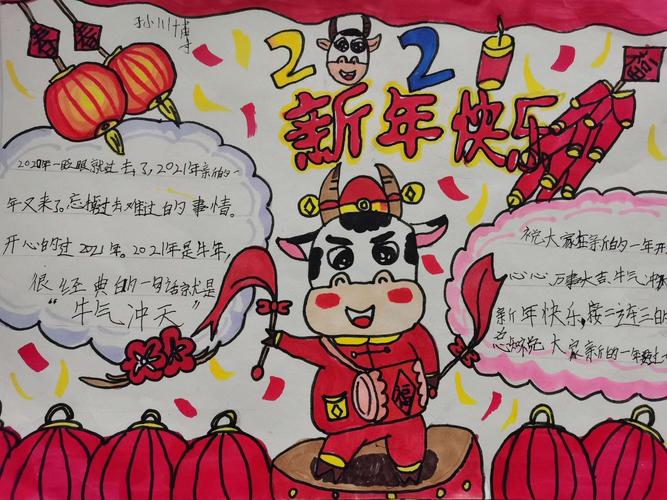 202
新年快乐
2020年一眨眼就过去了,2021年新的一
年又来了。忘掉过去难过的事情。
开心的过2021年。2021年是牛年,
很经典的一句话就是
“牛气冲天”
祝大家在新的一年开
心心、万事大吉、牛气冲
新年快乐,接二连三的
大家新的一年
福